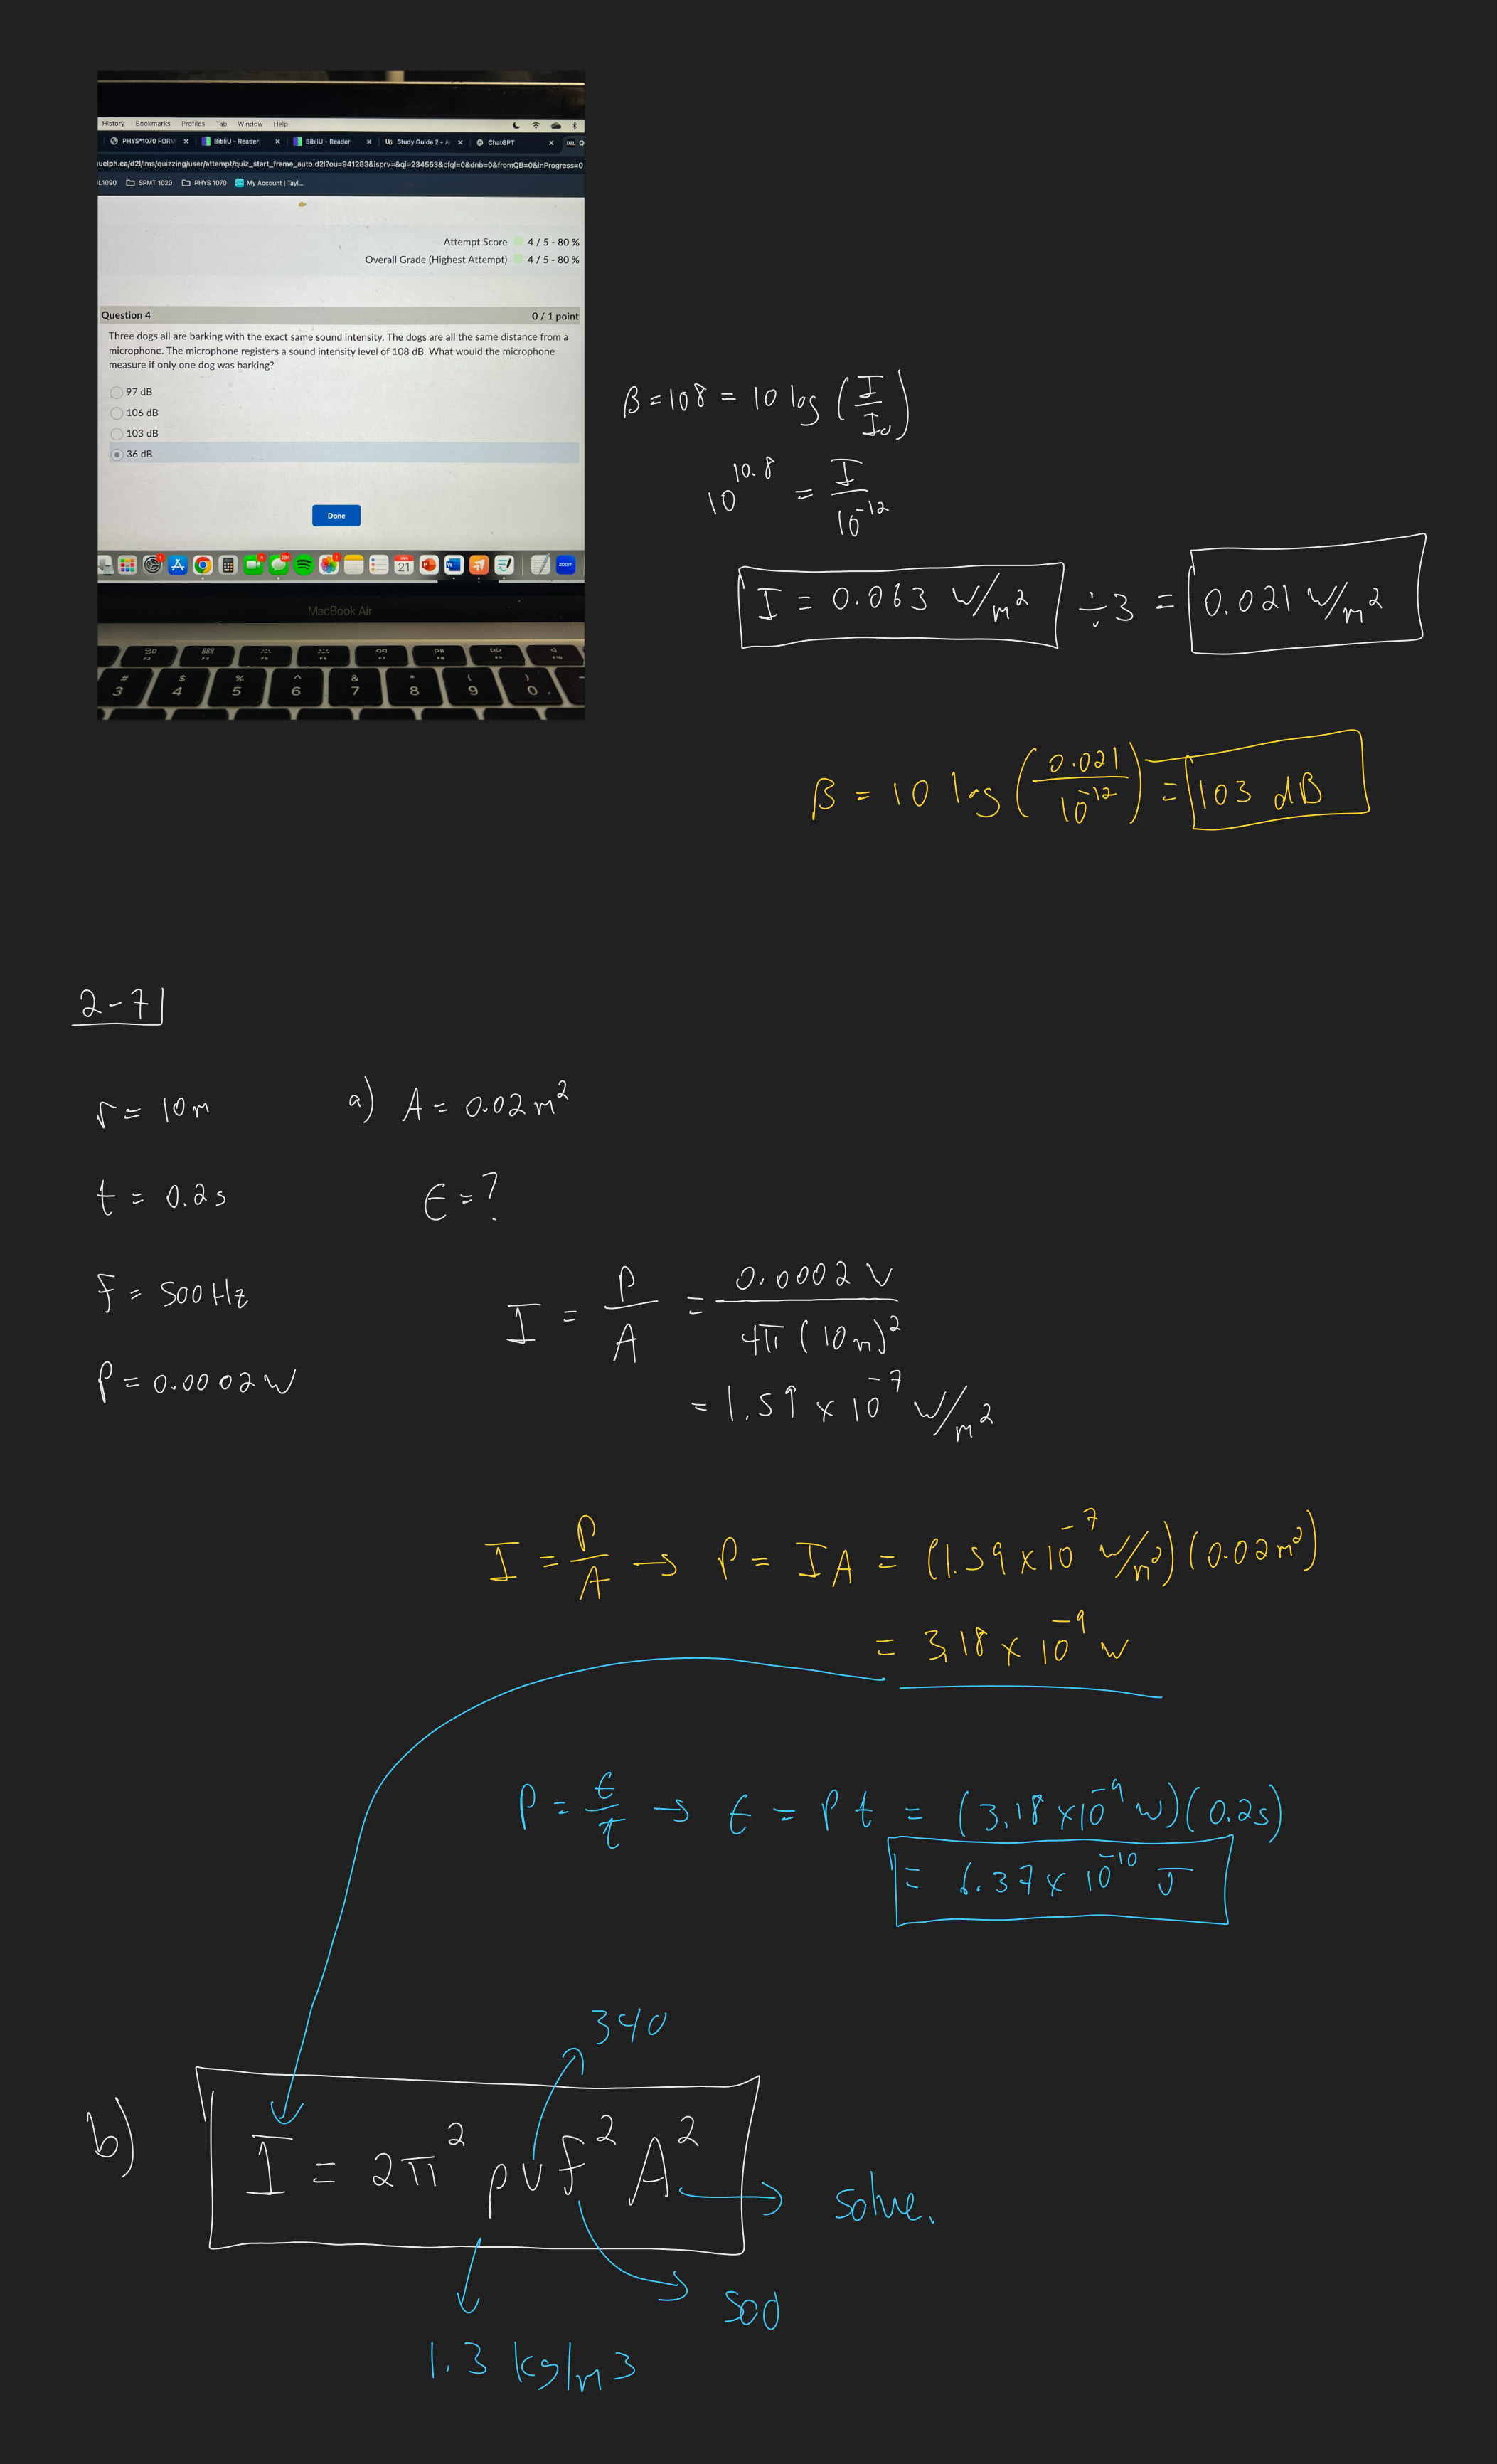 History Bookmarks Profiles Tab Window Help
PHYS*1070 FORM x BibliU - Reader x BibliU - Reader x Study Guide 2 - A x ChatGPT x
uelph.ca/d2l/lms/quizzing/user/attempt/quiz_start_frame_auto.d2l?ou=941283&isprv=&qi=234553&cfql=0&dnb=0&fromQB=0&inProgress=0
L1090 SPMT 1020 PHYS 1070 My Account | Tayl...
Attempt Score 4 / 5 - 80 %
Overall Grade (Highest Attempt) 4 / 5 - 80 %
Question 4 0 / 1 point
Three dogs all are barking with the exact same sound intensity. The dogs are all the same distance from a
microphone. The microphone registers a sound intensity level of 108 dB. What would the microphone
measure if only one dog was barking?
97 dB
106 dB
103 dB
36 dB
Done
21
zoom
MacBook Air
F3 F4 F5 F6 F7 F8 F9 F10
# $ % ^ & * ( )
3 4 5 6 7 8 9 0
β = 108 = 10 log (I/I₀)
10^10.8 = I/10^-12
I = 0.063 W/m² ÷ 3 = 0.021 W/m²
β = 10 log (0.021/10^-12) = 103 dB
2-7
r = 10m a) A = 0.02 m²
t = 0.2s E = ?
f = 500 Hz
I = P/A = 0.0002 W/4π(10m)²
P = 0.0002 W
= 1.59 x 10^-7 W/m²
I = P/A → P = IA = (1.59 x 10^-7 W/m²)(0.02m²)
= 3.18 x 10^-9 W
P = E/t → E = Pt = (3.18 x 10^-9 W)(0.2s)
= 6.37 x 10^-10 J
340
b) I = 2π² ρ v f² A² → solve.
500
1.3 kg/m3